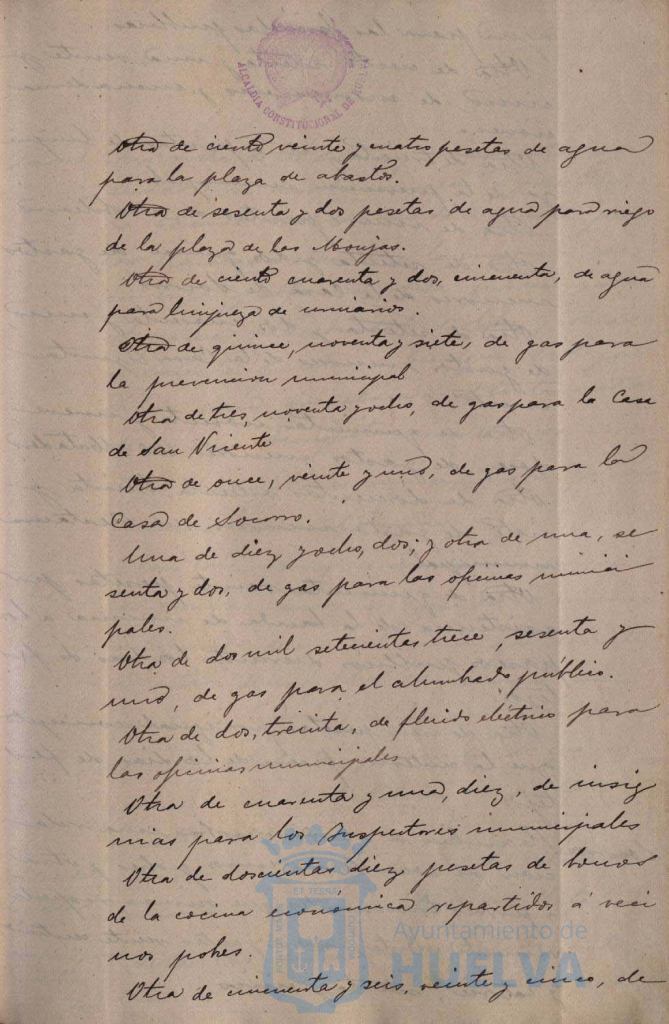 ALCALDIA CONSTITUCIONAL DE HUELVA
Otra de ciento veinte y cuatro pesetas de agua
para la plaza de abastos.
Otra de sesenta y dos pesetas de agua para riego
de la plaza de las Monjas.
Otra de ciento cuarenta y dos, cincuenta, de agua
para limpieza de urinarios.
Otra de quince, noventa y siete, de gas para
la prevencion municipal
Otra de tres, noventa y ocho, de gas para la Casa
de San Vicente
Otra de once, veinte y uno, de gas para la
Casa de Socorro.
Una de diez y ocho, dos; y otra de una, se
senta y dos, de gas para las oficinas munici
pales.
Otra de dos mil setecientas trece, sesenta y
uno, de gas para el alumbrado público.
Otra de dos, treinta, de fluido eléctrico para
las oficinas municipales
Otra de cuarenta y una, diez, de insig
nias para los Inspectores municipales
Otra de doscientas diez pesetas de bonos
de la cocina económica repartidos á veci
nos pobres.
Otra de cincuenta y seis, veinte y cinco, de
Ayuntamiento de
HUELVA